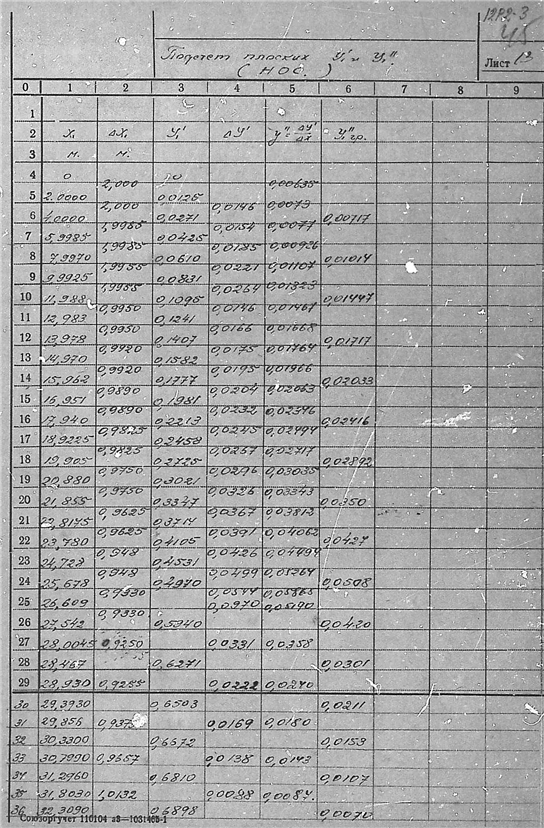 12Р2-3
45
Подсчет плоских У₁' и У₁".
( НОС. )
Лист 13
0 1 2 3 4 5 6 7 8 9
1
2 X₁ ΔX₁ У₁' ΔУ' У"=ΔУ'/ΔX У₁"гр.
3 м. м.
4 0 0
2,000 0,00635
5 2.0000 0,0125
2,000 0,0146 0,0073
6 4.0000 0,0271 0,00717
1,9985 0,0154 0,0077
7 5,9985 0,0425
1,9985 0,0185 0,00926
8 7,9970 0,0610 0,01014
1,9955 0,0221 0,01107
9 9,9925 0,0831
1,9955 0,0264 0,01323
10 11,988 0,1095 0,01447
0,9950 0,0146 0,01467
11 12,983 0,1241
0,9950 0,0166 0,01668
12 13,978 0,1407 0,01717
0,9920 0,0175 0,01764
13 14,970 0,1582
0,9920 0,0195 0,01966
14 15,962 0,1777 0,02033
0,9890 0,0204 0,02063
15 16,951 0,1981
0,9890 0,0232 0,02346
16 17,940 0,2213 0,02416
0,9825 0,0245 0,02494
17 18,9225 0,2458
0,9825 0,0267 0,02717
18 19,905 0,2725 0,02892
0,9750 0,0296 0,03035
19 20,880 0,3021
0,9750 0,0326 0,03343
20 21,855 0,3347 0,0350
0,9625 0,0367 0,03812
21 22,8175 0,3714
0,9625 0,0391 0,04062
22 23,780 0,4105 0,0427
0,948 0,0426 0,04494
23 24,728 0,4531
0,948 0,0499 0,05264
24 25,678 0,4970 0,0508
0,9330 0,0544 0,05865
25 26,609 0,0970 0,05190
0,9330
26 27,542 0,5940 0,0420
27 28,0045 0,9250 0,0331 0,0358
28 28,467 0,6271 0,0301
29 28,930 0,9255 0,0222 0,0240
30 29,3930 0,6503 0,0211
31 29,856 0,937 0,0169 0,0180
32 30,3300 0,6672 0,0159
33 30,7990 0,9657 0,0138 0,0143
34 31,2960 0,6810 0,0107
35 31,8030 1,0132 0,0088 0,0087.
36 32,3090 0,6898 0,0070
Союзоргучет 110104 зв—1031465-1